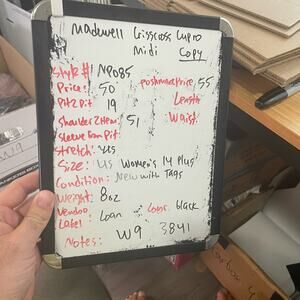 Madewell Crisscross Cupro
Midi Copy
Style #: NP085
Price: 50 poshmark Price: 55
Pit 2 Pit 19 Length:
Shoulder 2 Hem: 51 Waist:
Sleeve from Pit:
Stretch: yes
Size: US Women's 14 Plus
Condition: New with Tags
Weight: 8oz
Vendoo Label Loan Color: black
Notes: W9 3841
W9